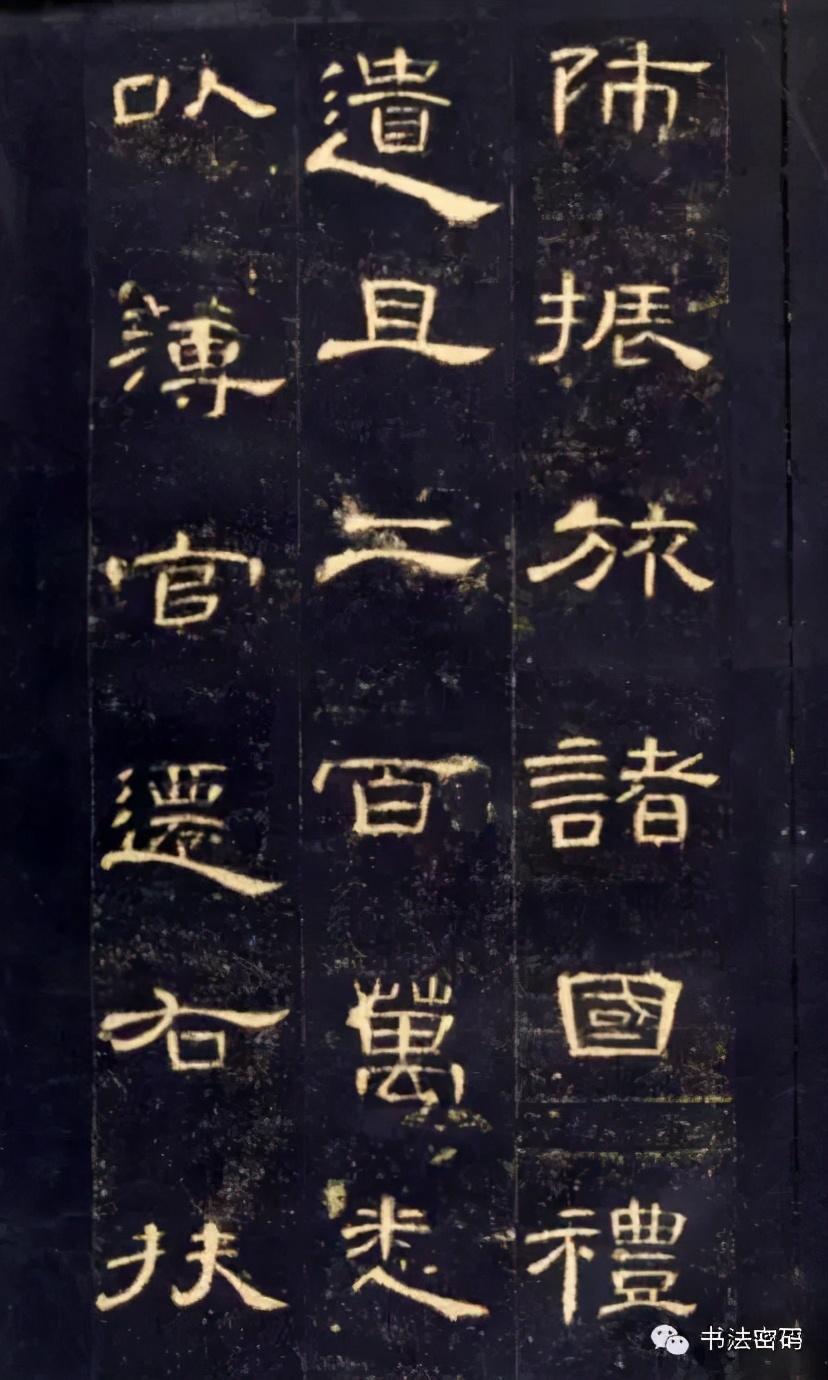 師振旅諸國禮
遺且二百萬悉
以薄官還右扶
书法密码